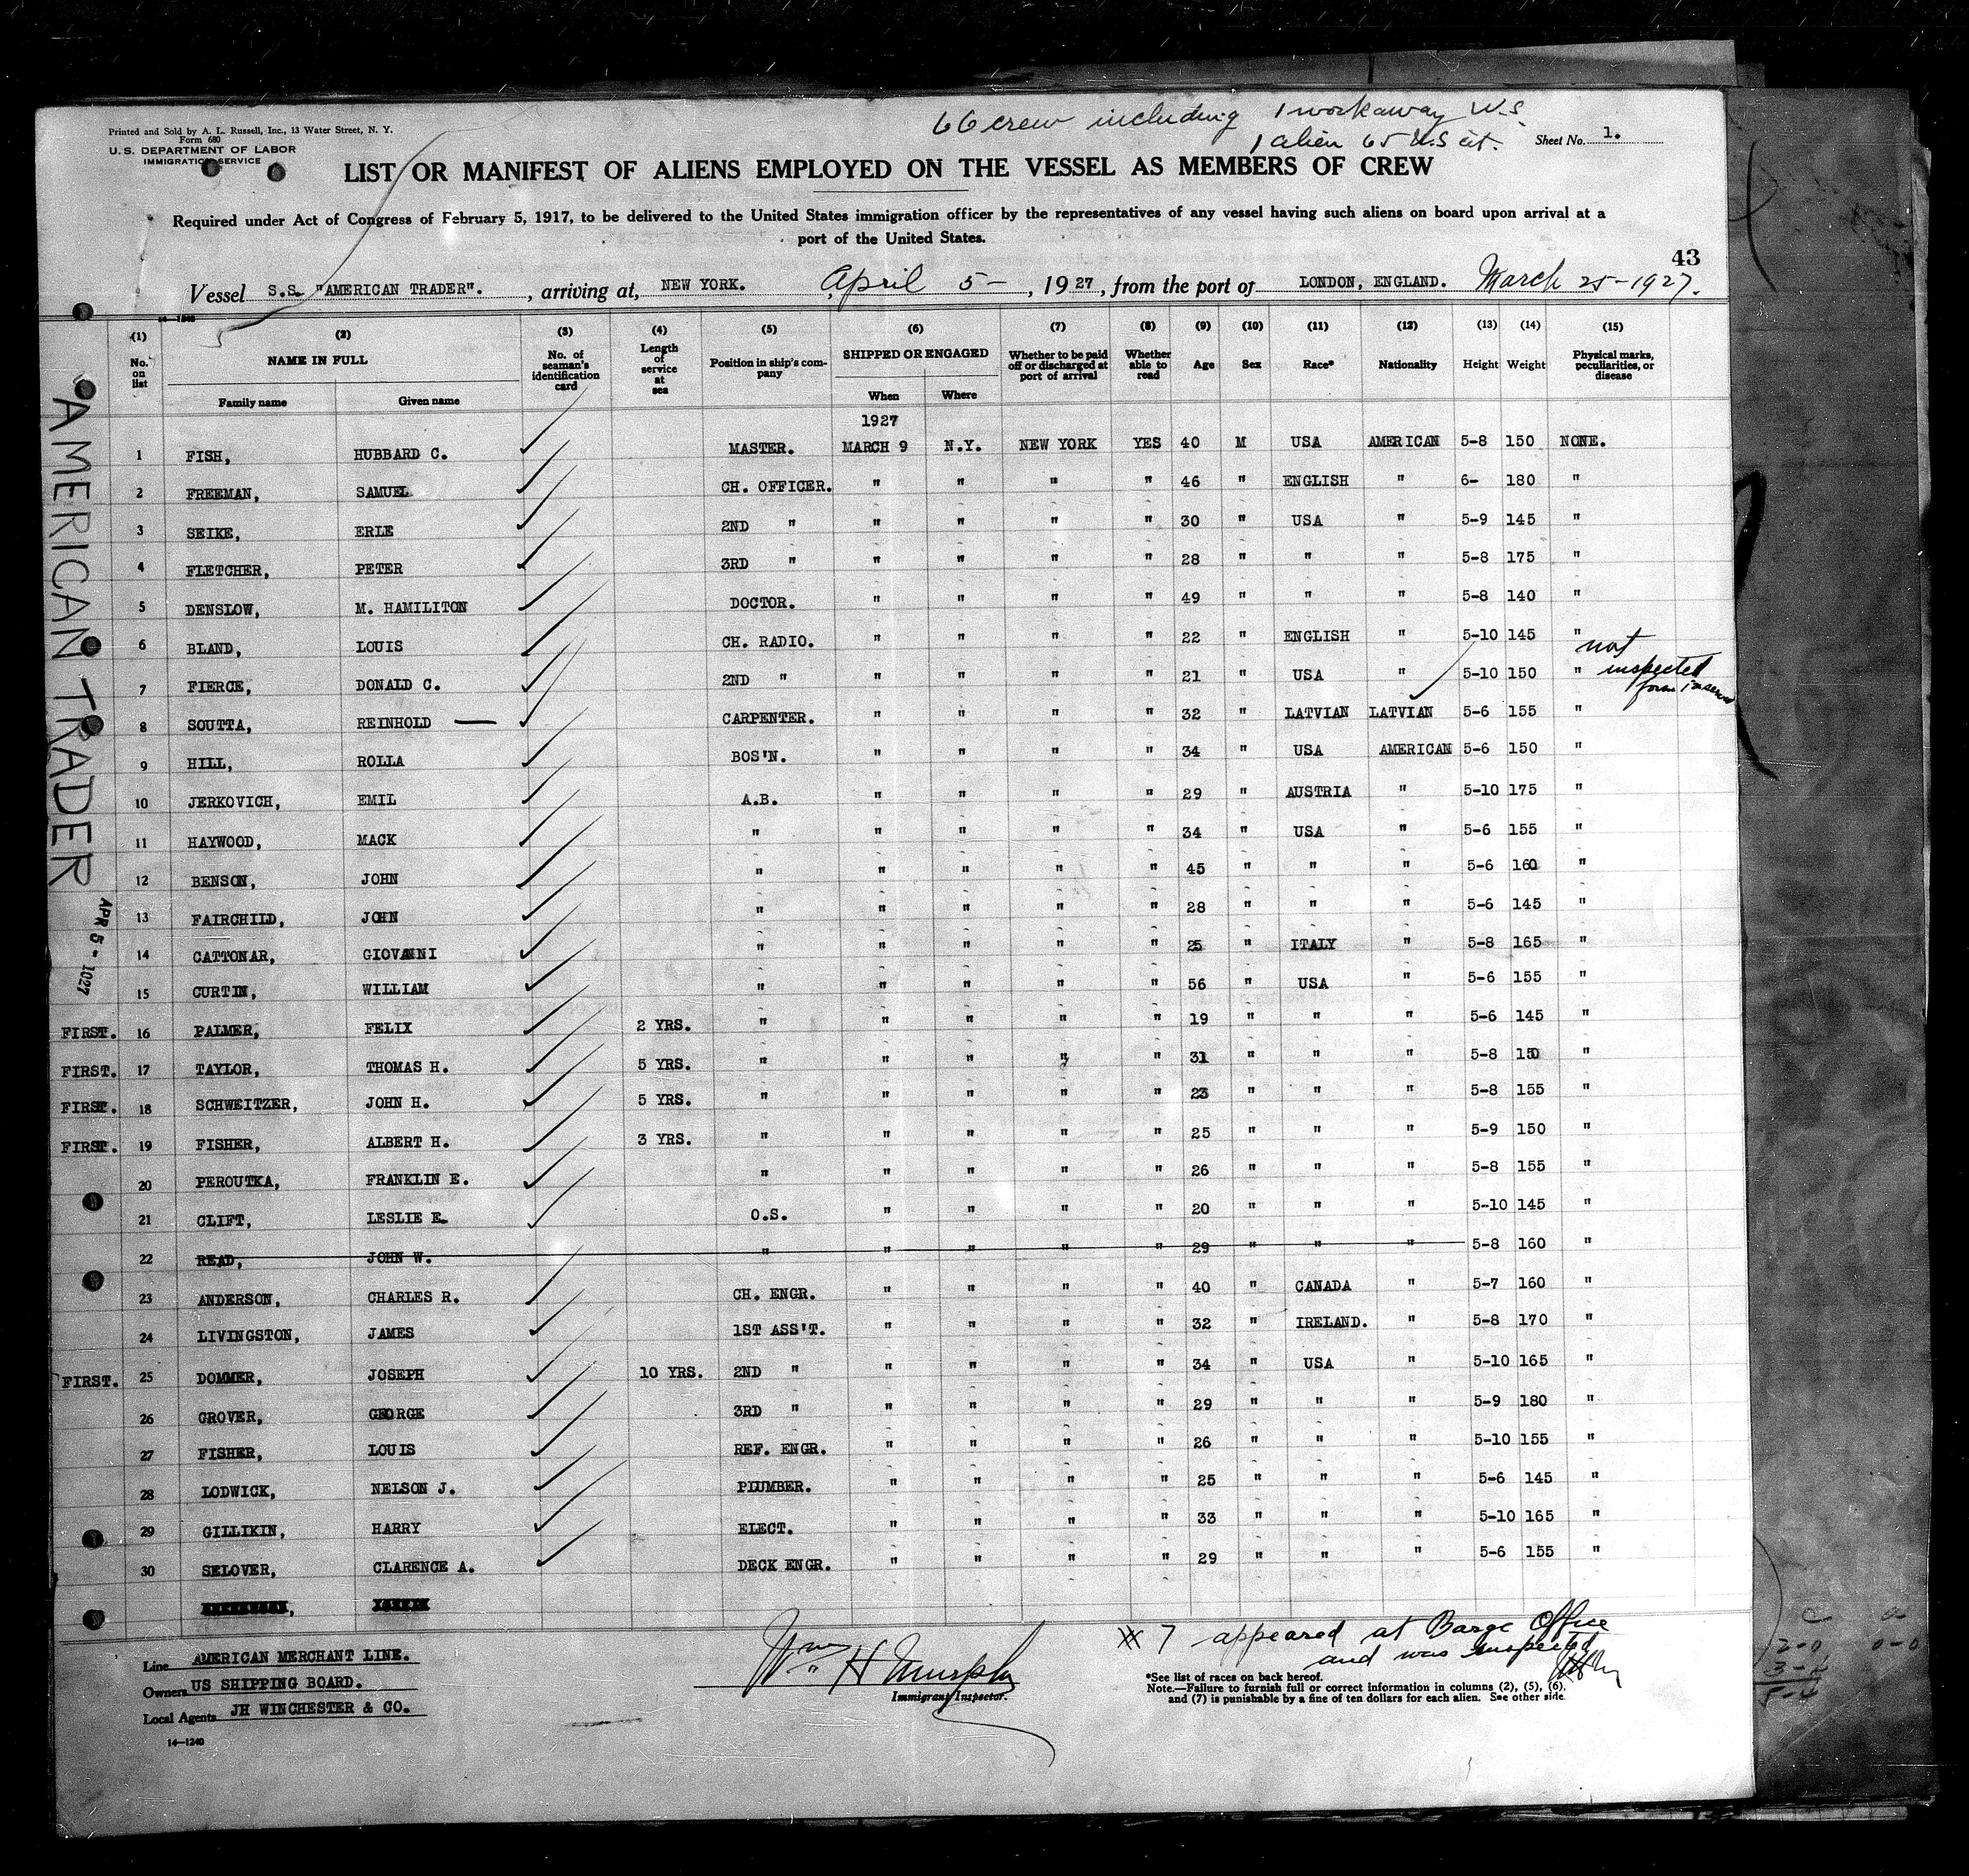 66 crew including 1 workaway W.S.
1 alien 65 U.S cit.
Printed and Sold by A. L. Russell, Inc., 13 Water Street, N. Y.
Form 680
U.S. DEPARTMENT OF LABOR
IMMIGRATION SERVICE
Sheet No. 1.
LIST OR MANIFEST OF ALIENS EMPLOYED ON THE VESSEL AS MEMBERS OF CREW
Required under Act of Congress of February 5, 1917, to be delivered to the United States immigration officer by the representatives of any vessel having such aliens on board upon arrival at a
port of the United States.
43
Vessel S.S. "AMERICAN TRADER". , arriving at, NEW YORK. April 5- , 1927, from the port of LONDON, ENGLAND. March 25-1927.
(1) (2) (3) (4) (5) (6) (7) (8) (9) (10) (11) (12) (13) (14) (15)
No. on list NAME IN FULL Family name Given name No. of seaman's identification card Length of service at sea Position in ship's company SHIPPED OR ENGAGED When Where Whether to be paid off or discharged at port of arrival Whether able to read Age Sex Race* Nationality Height Weight Physical marks, peculiarities, or disease
1927
1 FISH, HUBBARD C. MASTER. MARCH 9 N.Y. NEW YORK YES 40 M USA AMERICAN 5-8 150 NONE.
2 FREEMAN, SAMUEL CH. OFFICER. " " " " 46 " ENGLISH " 6- 180 "
3 SEIKE, ERLE 2ND " " " " " 30 " USA " 5-9 145 "
4 FLETCHER, PETER 3RD " " " " " 28 " " " 5-8 175 "
5 DENSLOW, M. HAMILITON DOCTOR. " " " " 49 " " " 5-8 140 "
6 BLAND, LOUIS CH. RADIO. " " " " 22 " ENGLISH " 5-10 145 "
not
7 FIERCE, DONALD C. 2ND " " " " " 21 " USA " 5-10 150 " inspected
8 SOUTTA, REINHOLD CARPENTER. " " " " 32 " LATVIAN LATVIAN 5-6 155 "
9 HILL, ROLLA BOS'N. " " " " 34 " USA AMERICAN 5-6 150 "
10 JERKOVICH, EMIL A.B. " " " " 29 " AUSTRIA " 5-10 175 "
11 HAYWOOD, MACK " " " " " 34 " USA " 5-6 155 "
12 BENSON, JOHN " " " " " 45 " " " 5-6 160 "
13 FAIRCHILD, JOHN " " " " " 28 " " " 5-6 145 "
14 CATTONAR, GIOVANNI " " " " " 25 " ITALY " 5-8 165 "
15 CURTIN, WILLIAM " " " " " 56 " USA " 5-6 155 "
FIRST. 16 PALMER, FELIX 2 YRS. " " " " " 19 " " " 5-6 145 "
FIRST. 17 TAYLOR, THOMAS H. 5 YRS. " " " " " 31 " " " 5-8 150 "
FIRST. 18 SCHWEITZER, JOHN H. 5 YRS. " " " " " 23 " " " 5-8 155 "
FIRST. 19 FISHER, ALBERT H. 3 YRS. " " " " " 25 " " " 5-9 150 "
20 PEROUTKA, FRANKLIN E. " " " " " 26 " " " 5-8 155 "
21 CLIFT, LESLIE E. O.S. " " " " 20 " " " 5-10 145 "
22 READ, JOHN W. " " " " " 29 " " " 5-8 160 "
23 ANDERSON, CHARLES R. CH. ENGR. " " " " 40 " CANADA " 5-7 160 "
24 LIVINGSTON, JAMES 1ST ASS'T. " " " " 32 " IRELAND. " 5-8 170 "
FIRST. 25 DOMMER, JOSEPH 10 YRS. 2ND " " " " " 34 " USA " 5-10 165 "
26 GROVER, GEORGE 3RD " " " " " 29 " " " 5-9 180 "
27 FISHER, LOUIS REF. ENGR. " " " " 26 " " " 5-10 155 "
28 LODWICK, NELSON J. PLUMBER. " " " " 25 " " " 5-6 145 "
29 GILLIKIN, HARRY ELECT. " " " " 33 " " " 5-10 165 "
30 SELOVER, CLARENCE A. DECK ENGR. " " " " 29 " " " 5-6 155 "
AMERICAN TRADER
APR 5 - 1927
Line AMERICAN MERCHANT LINE.
Owners US SHIPPING BOARD.
Local Agents JH WINCHESTER & CO.
14—1240
Wm H Murphy
Immigrant Inspector.
# 7 appeared at Barge Office
and was inspected
*See list of races on back hereof.
Note.—Failure to furnish full or correct information in columns (2), (5), (6),
and (7) is punishable by a fine of ten dollars for each alien. See other side.